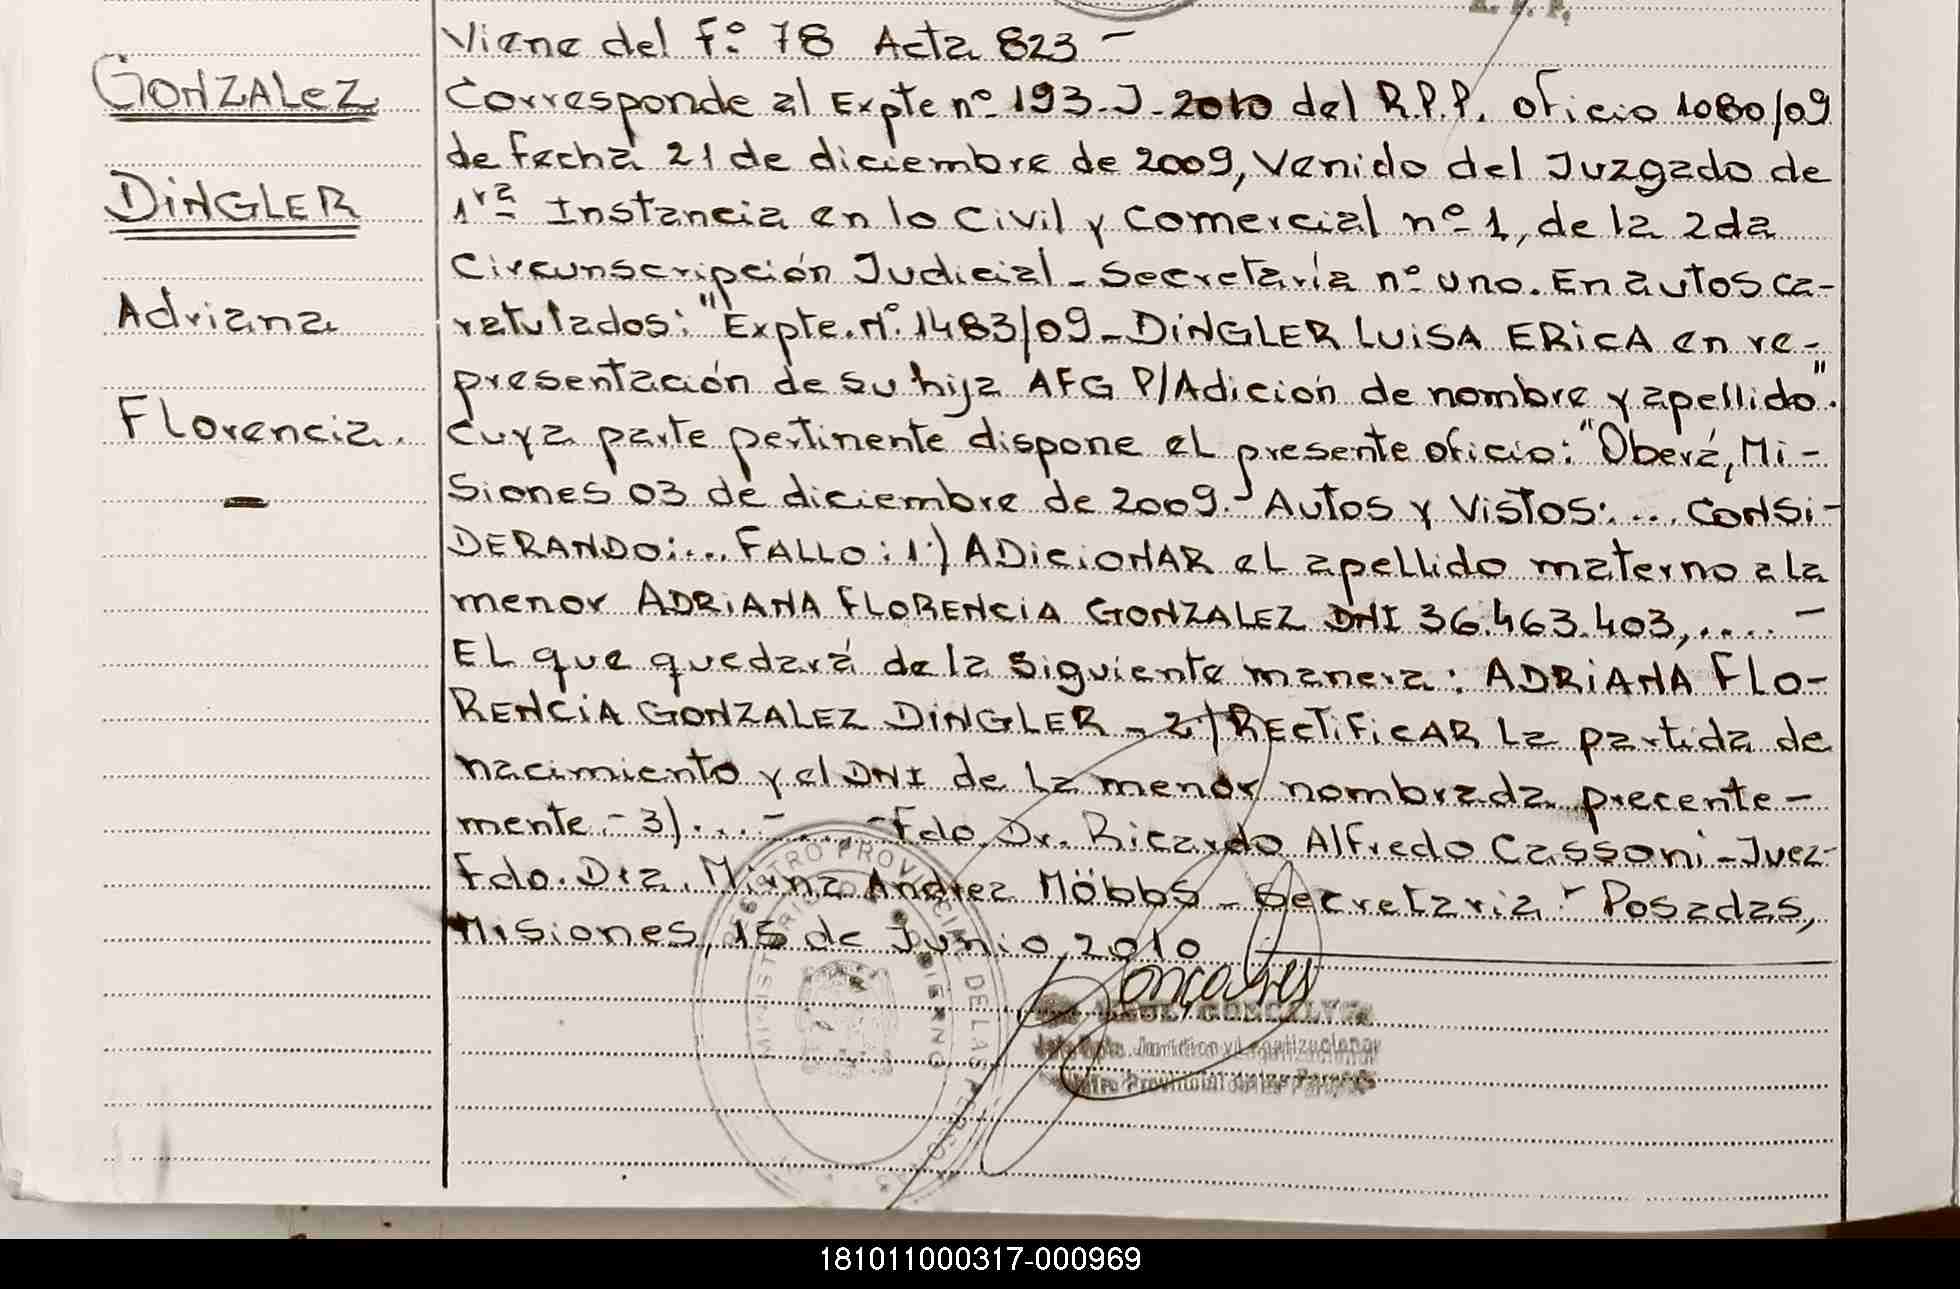 R. P. P.
Viene del fº 78 Acta 823 -
GONZALEZ
Corresponde al Expte nº 193-J-2010 del R.P.P. oficio 1080/09
de fecha 21 de diciembre de 2009, Venido del Juzgado de
DINGLER
1ra Instancia en lo Civil y Comercial nº 1, de la 2da
Circunscripción Judicial - Secretaría nº uno. En autos ca-
Adriana
ratulados: "Expte. Nº 1483/09 - DINGLER LUISA ERICA en re-
presentación de su hija AFG P/Adición de nombre y apellido".
Florencia. -
Cuya parte pertinente dispone el presente oficio: "Oberá, Mi-
siones 03 de diciembre de 2009.- Autos y Vistos: ... CONSI-
DERANDO: ... FALLO: 1º) ADICIONAR el apellido materno a la
menor ADRIANA FLORENCIA GONZALEZ DNI 36.463.403, .... -
El que quedará de la siguiente manera: ADRIANA FLO-
RENCIA GONZALEZ DINGLER - 2º) RECTIFICAR la partida de
nacimiento y el DNI de la menor nombrada precente-
mente - 3) ... - ... - Fdo. Dr. Ricardo Alfredo Cassoni - Juez-
Fdo. Dra. Mirna Andrea Möbbs - Secretaria - Posadas,
Misiones, 15 de Junio 2010
REGISTRO PROVINCIAL DE LAS PERSONAS
MINISTERIO DE GOBIERNO
Gonçalves
GONCALVES
Jurídico y
Provincial de las Personas
181011000317-000969